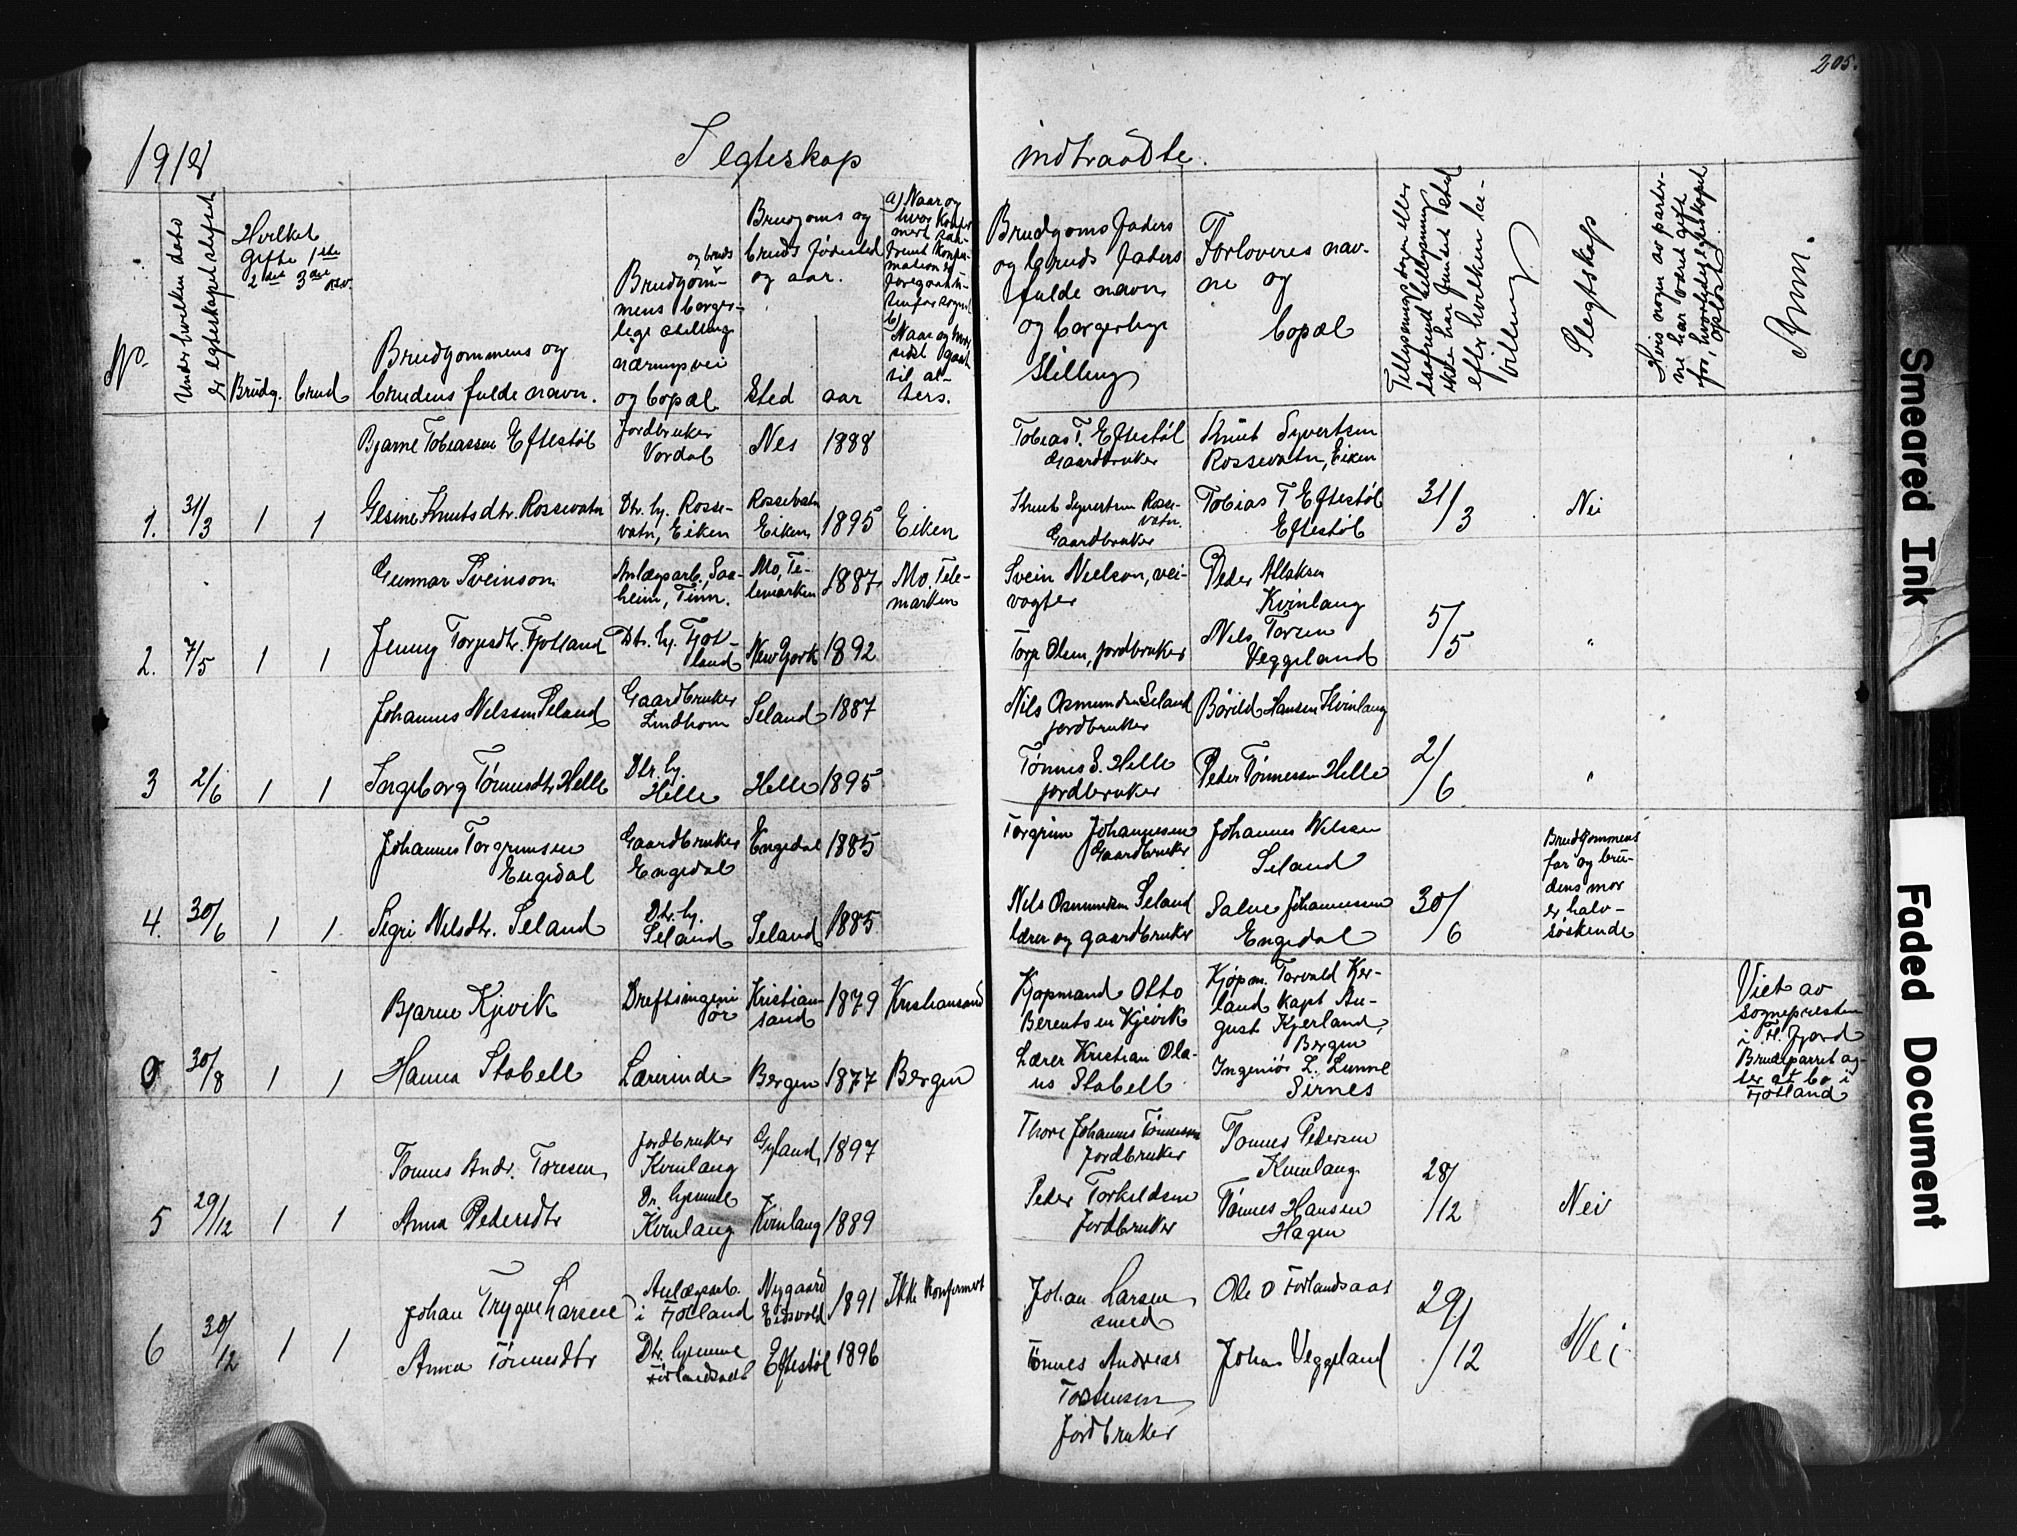 205.
1918
Egteskap indtraadte.
No.
Under hvilken dato
er egteskapet sluttet
Hvilket
Gifte 1ste
2det 3die osv.
Brudg. brud
Brudgommens og
brudens fulde navn.
og bruds
Brudgom-
mens borger-
lige stilling
næringsvei
og bopæl
Brudgoms og
bruds fødested
og aar.
Sted aar
a) Naar og
b)
Naar og hvor
sidst gaat
til al-
ters.
Brudgoms faders
og bruds faders
fulde navn
og borgerlige
stilling
Forloveres nav-
ne og
bopæl
Tillysningsdagen eller
ikke har fundet sted
efter hvilken be-
villing
Slegtskap
Hvis nogen av parter-
ne har været gift
før, hvorledes egteskapet
opløst
Anm.
Bjarne Tobiassen Eftestøl
Jordbruker
Vordal
Nes 1888
Tobias T. Eftestøl
Gaardbruker
Knut Syvertsen
Rossevatn, Eiken
1. 31/3 1 1
Gesine Knutsdtr. Rossevatn
Dtr. hj. Rosse-
vatn, Eiken
Rossevatn
Eiken 1895
Eiken
Knut Syvertsen Rosse-
vatn.
Gaardbruker
Tobias T Eftestøl
Eftestøl
31/3
Nei
Gunnar Sveinson
Anlægsarb., Saa-
heim, Tinn.
Mo, Te-
lemarken 1887
Mo, Tele-
marken
Svein Nielson, vei-
vogter
Peder Atlaksen
Kvinlaug
2. 7/5 1 1
Jenny Torjesdtr. Fjotland
Dtr. hj. Fjot-
land
New York 1892
Torje Olsen, jordbruker
Nils Torsen
Veggeland
5/5
"
Johannes Nilssen Seland
Gaardbruker
Lindhom
Seland 1887
Nils Osmundsen Seland
jordbruker
Børild Hansen Kvinlaug
3 2/6 1 1
Ingeborg Tønnesdtr Helle
Dtr. hj.
Helle
Helle 1895
Tønnes S. Helle
jordbruker
Peder Tønnessen Helle
2/6
"
Johannes Torgrimsen
Engedal
Gaardbruker
Engedal
Engedal 1885
Torgrim Johannesen
Gaardbruker
Johannes Nilssen
Seland
Brudgommens
far og bru-
dens mor
er halv-
søskende
4. 30/6 1 1
Sigri Nilsdtr. Seland
Dtr. hj.
Seland
Seland 1885
Nils Osmundsen Seland
lærer og gaardbruker
Salve Johannessen
Engedal
30/6
Bjarne Kjevik
Driftsingeni
ør
Kristian-
sand 1879
Kristiansand
Kjøpmand Otto
Berentsen Kjevik
Kjøpm. Torvald Kjer-
land kapt Au-
gust Kjerland,
Bergen
Viet av
sognepresten
i Fl. Fjord
Brudeparret ag-
ter at bo i
Fjotland
0 30/8 1 1
Hanna Stabell
Lærerinde
Bergen 1877
Bergen
Lærer Kristian Ola-
us Stabell
Ingeniør L. Lunne
Sirnes
Tønnes Andr. Toresen
Jordbruker
Kvinlaug
Gyland 1897
Thore Johannes Tønnessen
Jordbruker
Tønnes Pedersen
Kvinlaug
5 29/12 1 1
Anna Pedersdtr
Dr. hjemme
Kvinlaug
Kvinlaug 1889
Peder Torkildsen
Jordbruker
Tønnes Hansen
Hagen
28/12
Nei
Johan Trygve Larsen
Anlægsarb.
i Fjotland
Nygaard
Eidsvold 1891
Ikke konfirmert
Johan Larsen
smed
Ole O Førlandsaas
6 30/12 1 1
Anna Tønnesdtr
Dtr. hjemme
Førlandsaas
Eftestøl 1896
Tønnes Andreas
Torstensen
Jordbruker
Johan Veggeland
29/12
Nei
Smeared Ink
Faded Document